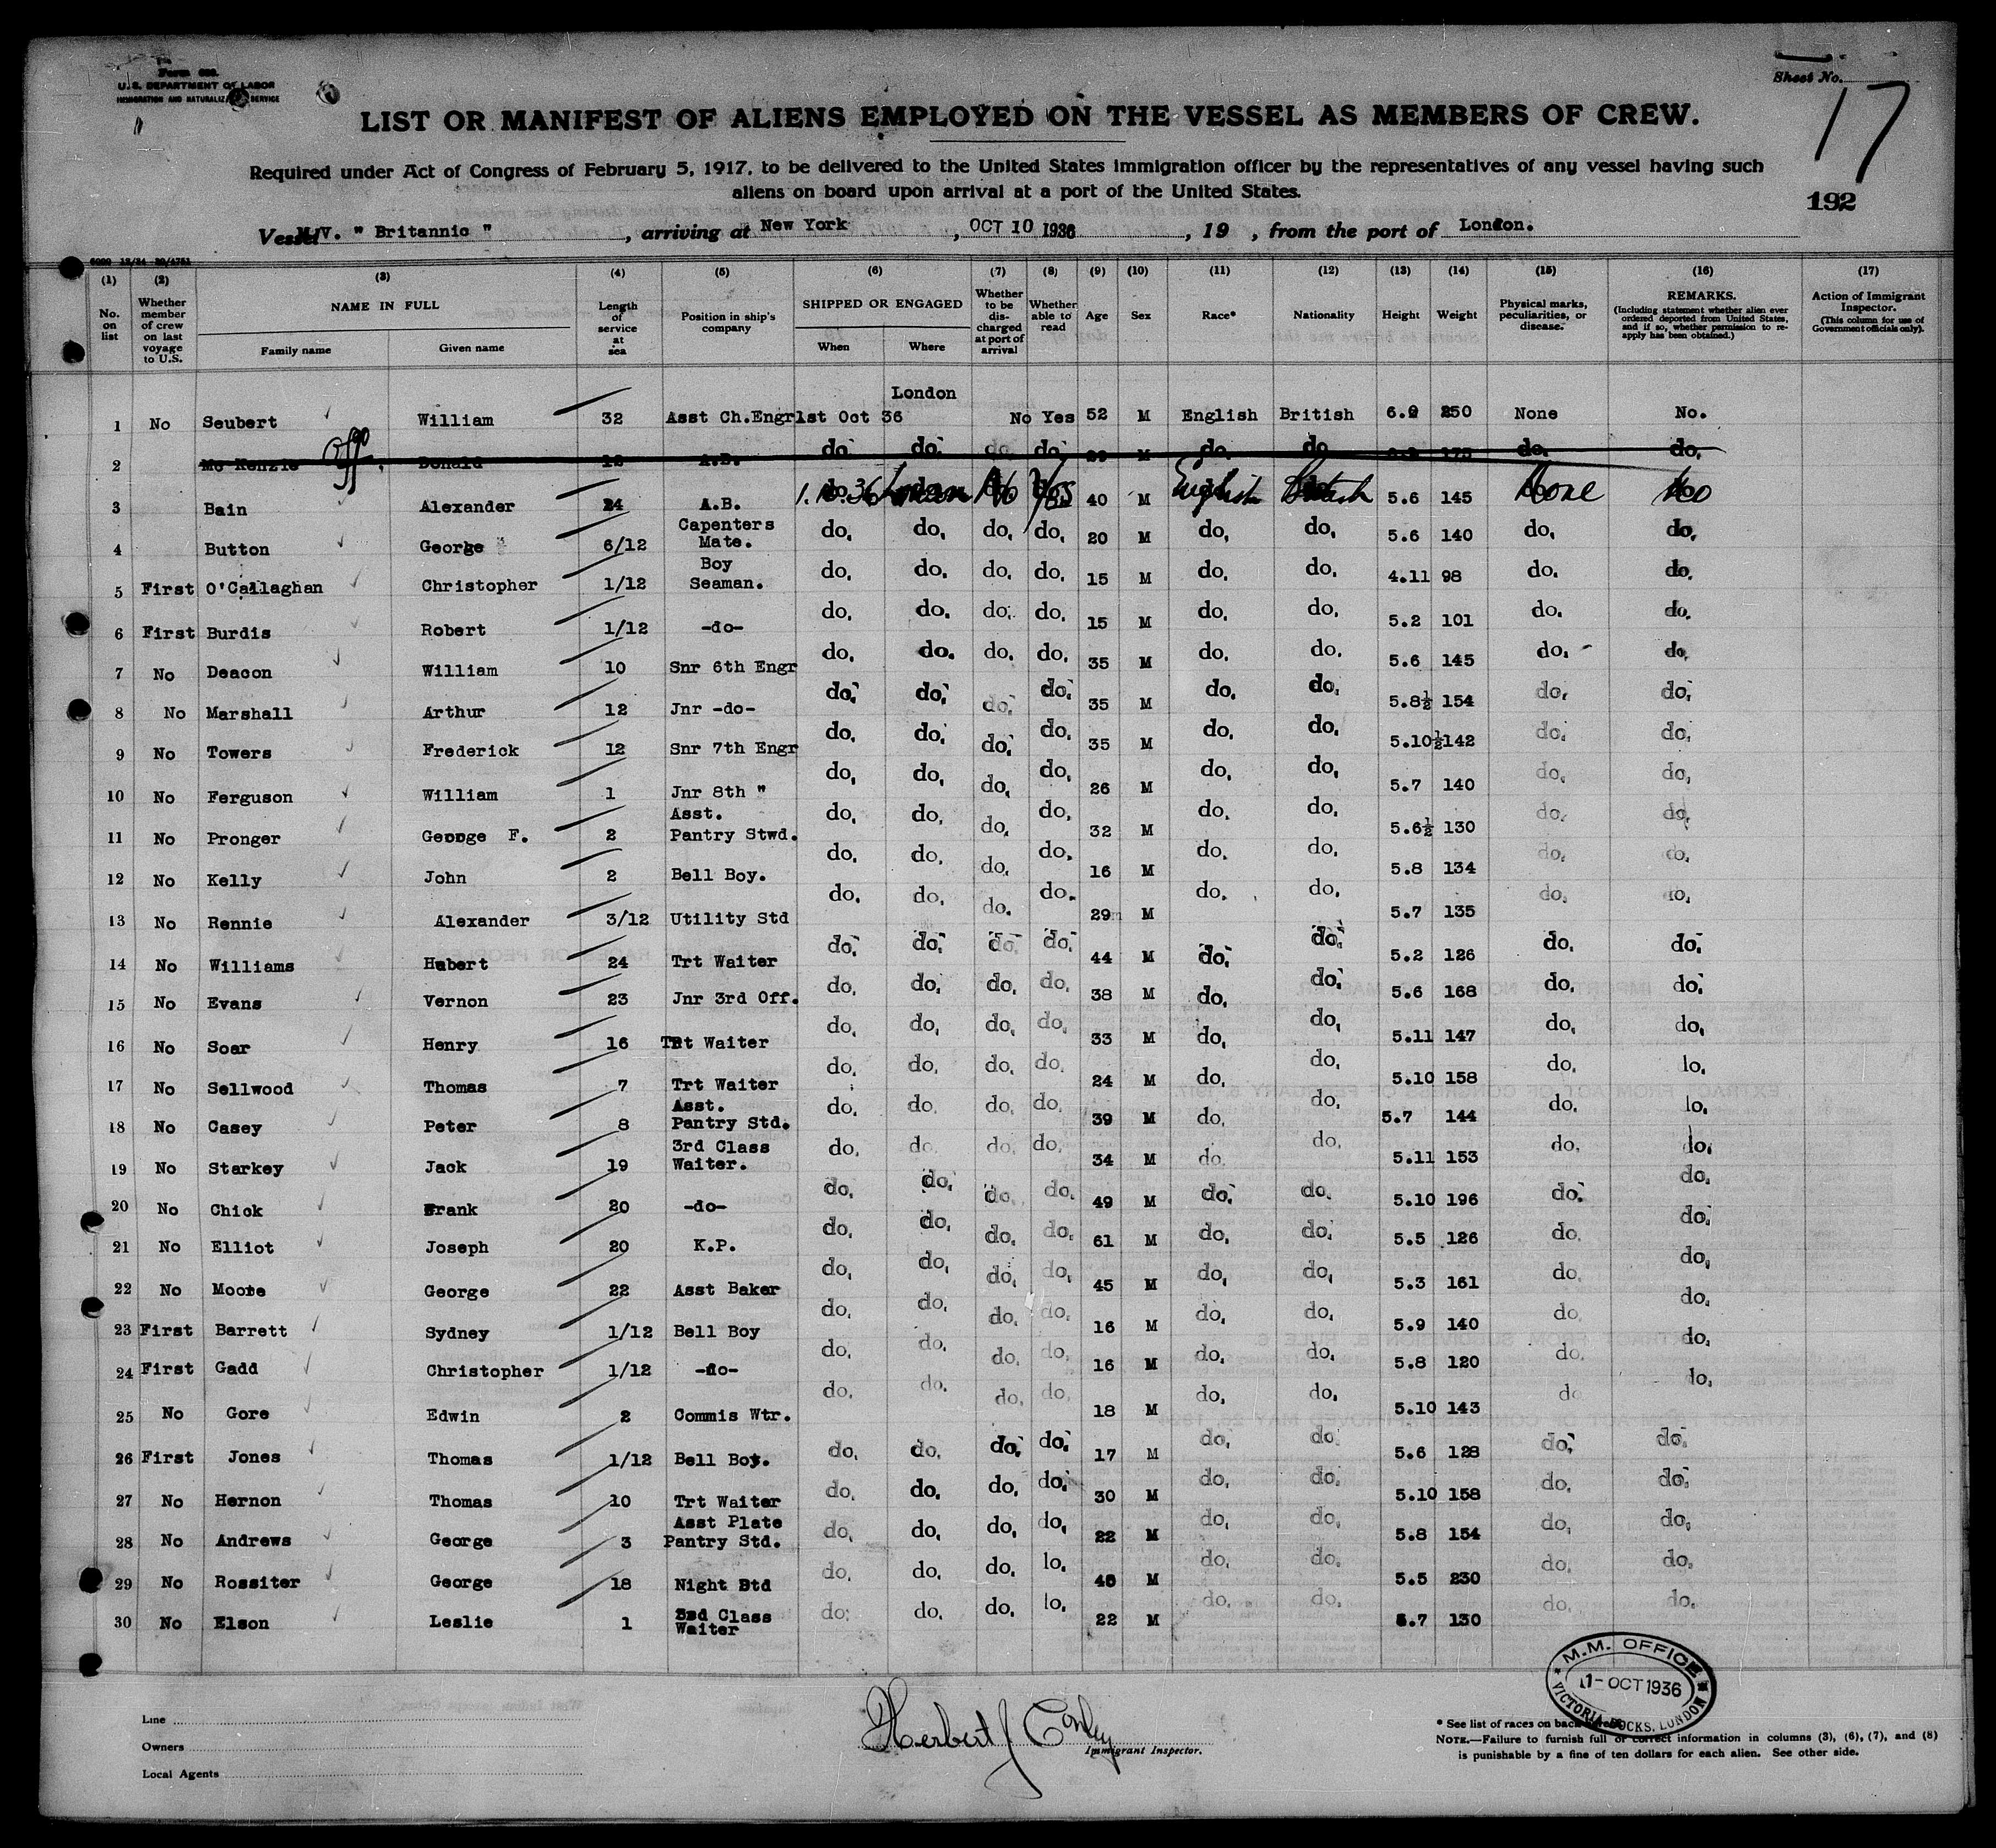 Form 680.
U.S. DEPARTMENT OF LABOR
IMMIGRATION AND NATURALIZATION SERVICE
Sheet No.
17
LIST OR MANIFEST OF ALIENS EMPLOYED ON THE VESSEL AS MEMBERS OF CREW.
Required under Act of Congress of February 5, 1917, to be delivered to the United States immigration officer by the representatives of any vessel having such
aliens on board upon arrival at a port of the United States.
192
Vessel M.V. " Britannic ", arriving at New York, OCT 10 1936, 19 , from the port of London.
(1) (2) (3) (4) (5) (6) (7) (8) (9) (10) (11) (12) (13) (14) (15) (16) (17)
No. on list Whether member of crew on last voyage to U.S. NAME IN FULL Family name Given name Length of service at sea Position in ship's company SHIPPED OR ENGAGED When Where Whether to be discharged at port of arrival Whether able to read Age Sex Race* Nationality Height Weight Physical marks, peculiarities, or disease. REMARKS. (Including statement whether alien ever ordered deported from United States, and if so, whether permission to re-apply has been obtained.) Action of Immigrant Inspector. (This column for use of Government officials only).
London
1 No Seubert William 32 Asst Ch.Engr 1st Oct 36 No Yes 52 M English British 6.2 250 None No.
2 Mc Kenzie Donald 12 A.B. do. do. do. do. M do. do. 175 do. do.
3 Bain Alexander 24 A.B. 1.10.36 London No Yes 40 M English British 5.6 145 None No
4 Button George 6/12 Capenters Mate. do. do. do. do. 20 M do. do. 5.6 140 do. do.
5 First O'Callaghan Christopher 1/12 Boy Seaman. do. do. do. do. 15 M do. do. 4.11 98 do. do.
6 First Burdis Robert 1/12 -do- do. do. do. do. 15 M do. do. 5.2 101 do. do.
7 No Deacon William 10 Snr 6th Engr do. do. do. do. 35 M do. do. 5.6 145 do. do.
8 No Marshall Arthur 12 Jnr -do- do. do. do. do. 35 M do. do. 5.8½ 154 do. do.
9 No Towers Frederick 12 Snr 7th Engr do. do. do. do. 35 M do. do. 5.10½ 142 do. do.
10 No Ferguson William 1 Jnr 8th " do. do. do. do. 26 M do. do. 5.7 140 do. do.
11 No Pronger George F. 2 Asst. Pantry Stwd. do. do. do. do. 32 M do. do. 5.6½ 130 do. do.
12 No Kelly John 2 Bell Boy. do. do. do. do. 16 M do. do. 5.8 134 do. do.
13 No Rennie Alexander 3/12 Utility Std do. do. do. do. 29 M do. do. 5.7 135 do. do.
14 No Williams Hubert 24 Trt Waiter do. do. do. do. 44 M do. do. 5.2 126 do. do.
15 No Evans Vernon 23 Jnr 3rd Off. do. do. do. do. 38 M do. do. 5.6 168 do. do.
16 No Soar Henry 16 Trt Waiter do. do. do. do. 33 M do. do. 5.11 147 do. do.
17 No Sellwood Thomas 7 Trt Waiter do. do. do. do. 24 M do. do. 5.10 158 do. do.
18 No Casey Peter 8 Asst. Pantry Std. do. do. do. do. 39 M do. do. 5.7 144 do. do.
19 No Starkey Jack 19 3rd Class Waiter. do. do. do. do. 34 M do. do. 5.11 153 do. do.
20 No Chick Frank 20 -do- do. do. do. do. 49 M do. do. 5.10 196 do. do.
21 No Elliot Joseph 20 K.P. do. do. do. do. 61 M do. do. 5.5 126 do. do.
22 No Moore George 22 Asst Baker do. do. do. do. 45 M do. do. 5.3 161 do. do.
23 First Barrett Sydney 1/12 Bell Boy do. do. do. do. 16 M do. do. 5.9 140 do. do.
24 First Gadd Christopher 1/12 -do- do. do. do. do. 16 M do. do. 5.8 120 do. do.
25 No Gore Edwin 2 Commis Wtr. do. do. do. do. 18 M do. do. 5.10 143 do do.
26 First Jones Thomas 1/12 Bell Boy. do. do. do. do. 17 M do. do. 5.6 128 do. do.
27 No Hernon Thomas 10 Trt Waiter do. do. do. do. 30 M do. do. 5.10 158 do. do.
28 No Andrews George 3 Asst Plate Pantry Std. do. do. do. do. 22 M do. do. 5.8 154 do. do.
29 No Rossiter George 18 Night Std do. do. do. do. M do. do. 5.5 230 do. do.
30 No Elson Leslie 1 3rd Class Waiter do. do. do. do. 22 M do. do. 5.7 130 do. do.
M.M. OFFICE
1-OCT 1936
VICTORIA DOCKS, LONDON
Line
Owners
Local Agents
Herbert J Conley
Immigrant Inspector.
* See list of races on back hereof.
NOTE.—Failure to furnish full or correct information in columns (3), (6), (7), and (8)
is punishable by a fine of ten dollars for each alien. See other side.